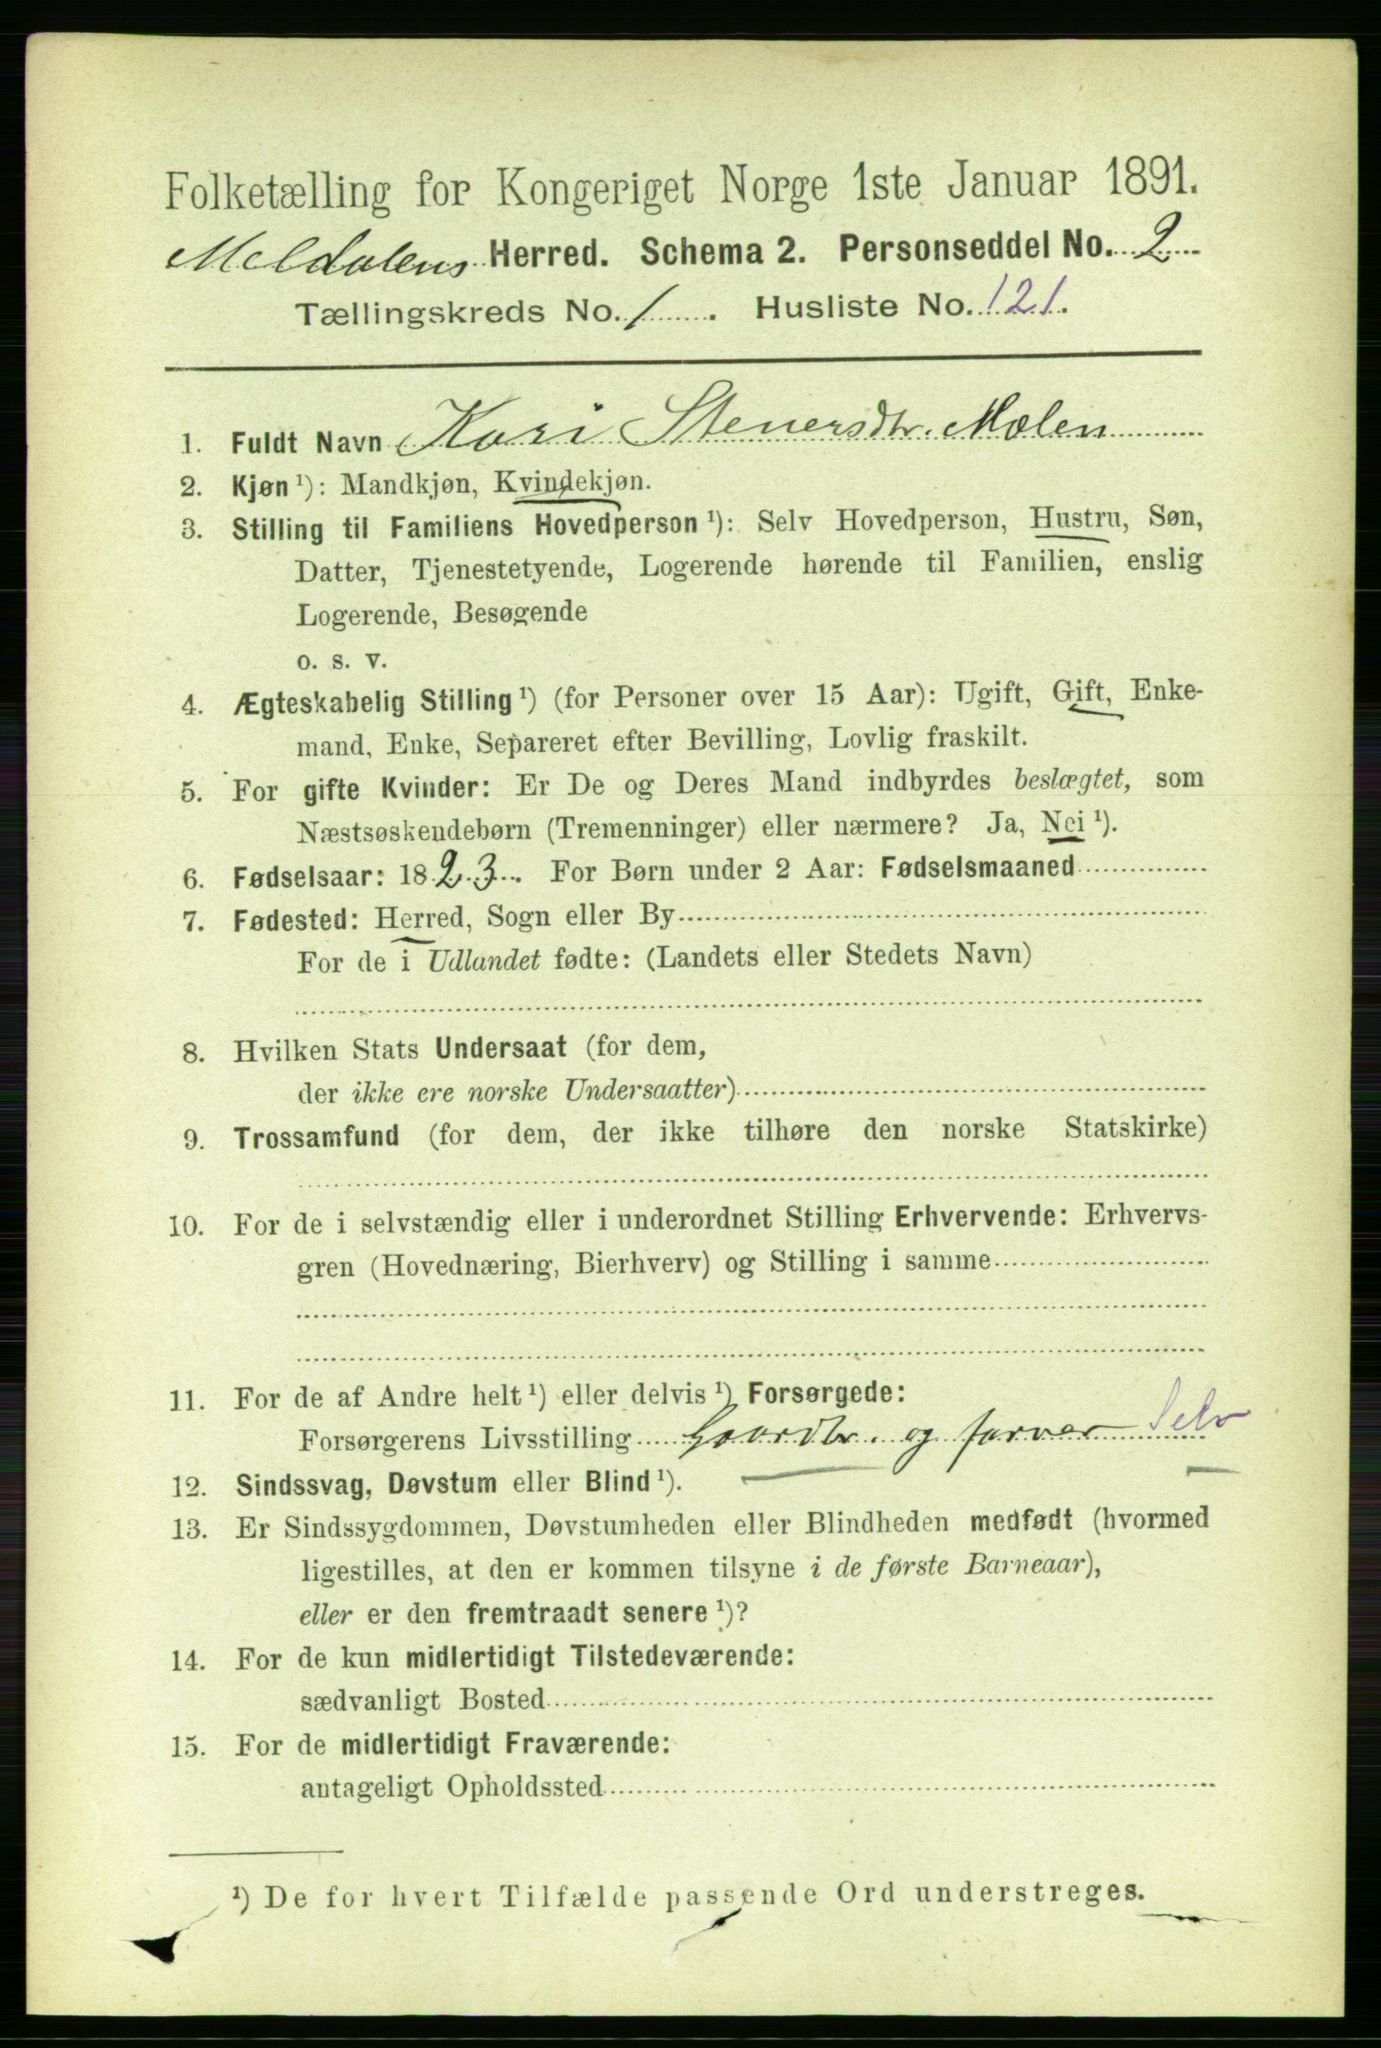 Folketælling for Kongeriget Norge 1ste Januar 1891.
Meldalens Herred. Schema 2. Personseddel No. 2
Tællingskreds No. 1. Husliste No. 121.
1. Fuldt Navn Kari Stenersdtr. Mølen
2. Kjøn ¹): Mandkjøn, Kvindekjøn.
3. Stilling til Familiens Hovedperson ¹): Selv Hovedperson, Hustru, Søn,
Datter, Tjenestetyende, Logerende hørende til Familien, enslig
Logerende, Besøgende
o. s. v.
4. Ægteskabelig Stilling ¹) (for Personer over 15 Aar): Ugift, Gift, Enke-
mand, Enke, Separeret efter Bevilling, Lovlig fraskilt.
5. For gifte Kvinder: Er De og Deres Mand indbyrdes beslægtet, som
Næstsøskendebørn (Tremenninger) eller nærmere? Ja, Nei ¹).
6. Fødselsaar: 1823. For Børn under 2 Aar: Fødselsmaaned
7. Fødested: Herred, Sogn eller By
For de i Udlandet fødte: (Landets eller Stedets Navn)
8. Hvilken Stats Undersaat (for dem,
der ikke ere norske Undersaatter)
9. Trossamfund (for dem, der ikke tilhøre den norske Statskirke)
10. For de i selvstændig eller i underordnet Stilling Erhvervende: Erhvervs-
gren (Hovednæring, Bierhverv) og Stilling i samme
11. For de af Andre helt ¹) eller delvis ¹) Forsørgede:
Forsørgerens Livsstilling Gaardbr. og farver Selv
12. Sindssvag, Døvstum eller Blind ¹).
13. Er Sindssygdommen, Døvstumheden eller Blindheden medfødt (hvormed
ligestilles, at den er kommen tilsyne i de første Barneaar),
eller er den fremtraadt senere ¹)?
14. For de kun midlertidigt Tilstedeværende:
sædvanligt Bosted
15. For de midlertidigt Fraværende:
antageligt Opholdssted
¹) De for hvert Tilfælde passende Ord understreges.